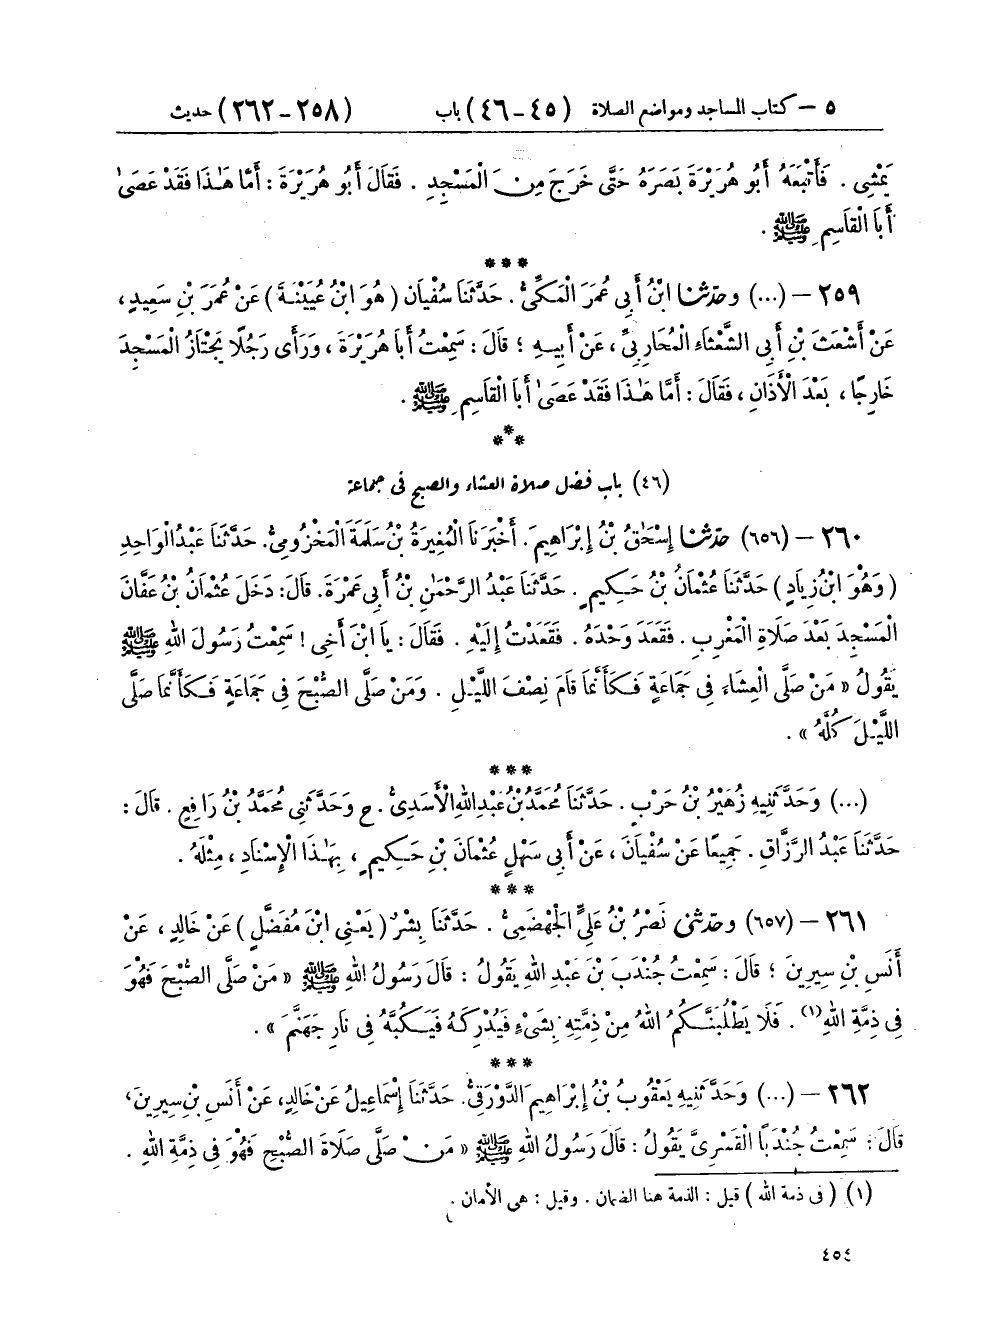 ٥ – كتاب المساجد ومواضع الصلاة (٤٥-٤٦) باب (٢٥٨-٢٦٢) حديث
يَمْشِى . فَأَتْبَعَهُ أَبُو هُرَيْرَةَ بَصَرَهُ حَتَّى خَرَجَ مِنَ الْمَسْجِدِ . فَقَالَ أَبُو هُرَيْرَةَ : أَمَّا هَٰذَا فَقَدْ عَصَىٰ
أَبَا الْقَاسِمِ ﷺ .
***
٢٥٩ – (...) وحَدَّثَنَا ابْنُ أَبِى عُمَرَ الْمَكِّىُّ . حَدَّثَنَا سُفْيَانُ ( هُوَ ابْنُ عُيَيْنَةَ ) عَنْ عُمَرَ بْنِ سَعِيدٍ ،
عَنْ أَشْعَثَ بْنِ أَبِى الشَّعْثَاءِ الْمُحَارِبِىِّ ، عَنْ أَبِيهِ ؛ قَالَ : سَمِعْتُ أَبَا هُرَيْرَةَ ، وَرَأَى رَجُلًا يَجْتَازُ الْمَسْجِدَ
خَارِجًا ، بَعْدَ الْأَذَانِ ، فَقَالَ : أَمَّا هَٰذَا فَقَدْ عَصَىٰ أَبَا الْقَاسِمِ ﷺ .
***
(٤٦) باب فضل صلاة العشاء والصبح فى جماعة
٢٦٠ – (٦٥٦) حَدَّثَنَا إِسْحَٰقُ بْنُ إِبْرَاهِيمَ . أَخْبَرَنَا الْمُغِيرَةُ بْنُ سَلَمَةَ الْمَخْزُومِىُّ . حَدَّثَنَا عَبْدُ الْوَاحِدِ
( وَهُوَ ابْنُ زِيَادٍ ) حَدَّثَنَا عُثْمَانُ بْنُ حَكِيمٍ . حَدَّثَنَا عَبْدُ الرَّحْمَٰنِ بْنُ أَبِى عَمْرَةَ . قَالَ : دَخَلَ عُثْمَانُ بْنُ عَفَّانَ
الْمَسْجِدَ بَعْدَ صَلَاةِ الْمَغْرِبِ . فَقَعَدَ وَحْدَهُ . فَقَعَدْتُ إِلَيْهِ . فَقَالَ : يَا ابْنَ أَخِى ! سَمِعْتُ رَسُولَ اللهِ ﷺ
يَقُولُ « مَنْ صَلَّى الْعِشَاءَ فِى جَمَاعَةٍ فَكَأَنَّمَا قَامَ نِصْفَ اللَّيْلِ . وَمَنْ صَلَّى الصُّبْحَ فِى جَمَاعَةٍ فَكَأَنَّمَا صَلَّى
اللَّيْلَ كُلَّهُ » .
***
(...) وَحَدَّثَنِيهِ زُهَيْرُ بْنُ حَرْبٍ . حَدَّثَنَا مُحَمَّدُ بْنُ عَبْدِ اللهِ الْأَسَدِىُّ . ح وَحَدَّثَنِى مُحَمَّدُ بْنُ رَافِعٍ . قَالَ :
حَدَّثَنَا عَبْدُ الرَّزَّاقِ . جَمِيعًا عَنْ سُفْيَانَ ، عَنْ أَبِى سَهْلٍ عُثْمَانَ بْنِ حَكِيمٍ ، بِهَٰذَا الْإِسْنَادِ ، مِثْلَهُ .
***
٢٦١ – (٦٥٧) وحَدَّثَنِى نَصْرُ بْنُ عَلِىٍّ الْجَهْضَمِىُّ . حَدَّثَنَا بِشْرٌ ( يَعْنِى ابْنَ مُفَضَّلٍ ) عَنْ خَالِدٍ ، عَنْ
أَنَسِ بْنِ سِيرِينَ ؛ قَالَ : سَمِعْتُ جُنْدَبَ بْنَ عَبْدِ اللهِ يَقُولُ : قَالَ رَسُولُ اللهِ ﷺ « مَنْ صَلَّى الصُّبْحَ فَهُوَ
فِى ذِمَّةِ اللهِ(١) . فَلَا يَطْلُبَنَّكُمُ اللهُ مِنْ ذِمَّتِهِ بِشَىْءٍ فَيُدْرِكَهُ فَيَكُبَّهُ فِى نَارِ جَهَنَّمَ » .
***
٢٦٢ – (...) وَحَدَّثَنِيهِ يَعْقُوبُ بْنُ إِبْرَاهِيمَ الدَّوْرَقِىُّ . حَدَّثَنَا إِسْمَاعِيلُ عَنْ خَالِدٍ ، عَنْ أَنَسِ بْنِ سِيرِينَ ،
قَالَ : سَمِعْتُ جُنْدَبًا الْقَسْرِىَّ يَقُولُ : قَالَ رَسُولُ اللهِ ﷺ « مَنْ صَلَّى صَلَاةَ الصُّبْحِ فَهُوَ فِى ذِمَّةِ اللهِ .
(١) ( فى ذمة الله ) قيل : الذمة هنا الضمان . وقيل : هى الأمان .
٤٥٤